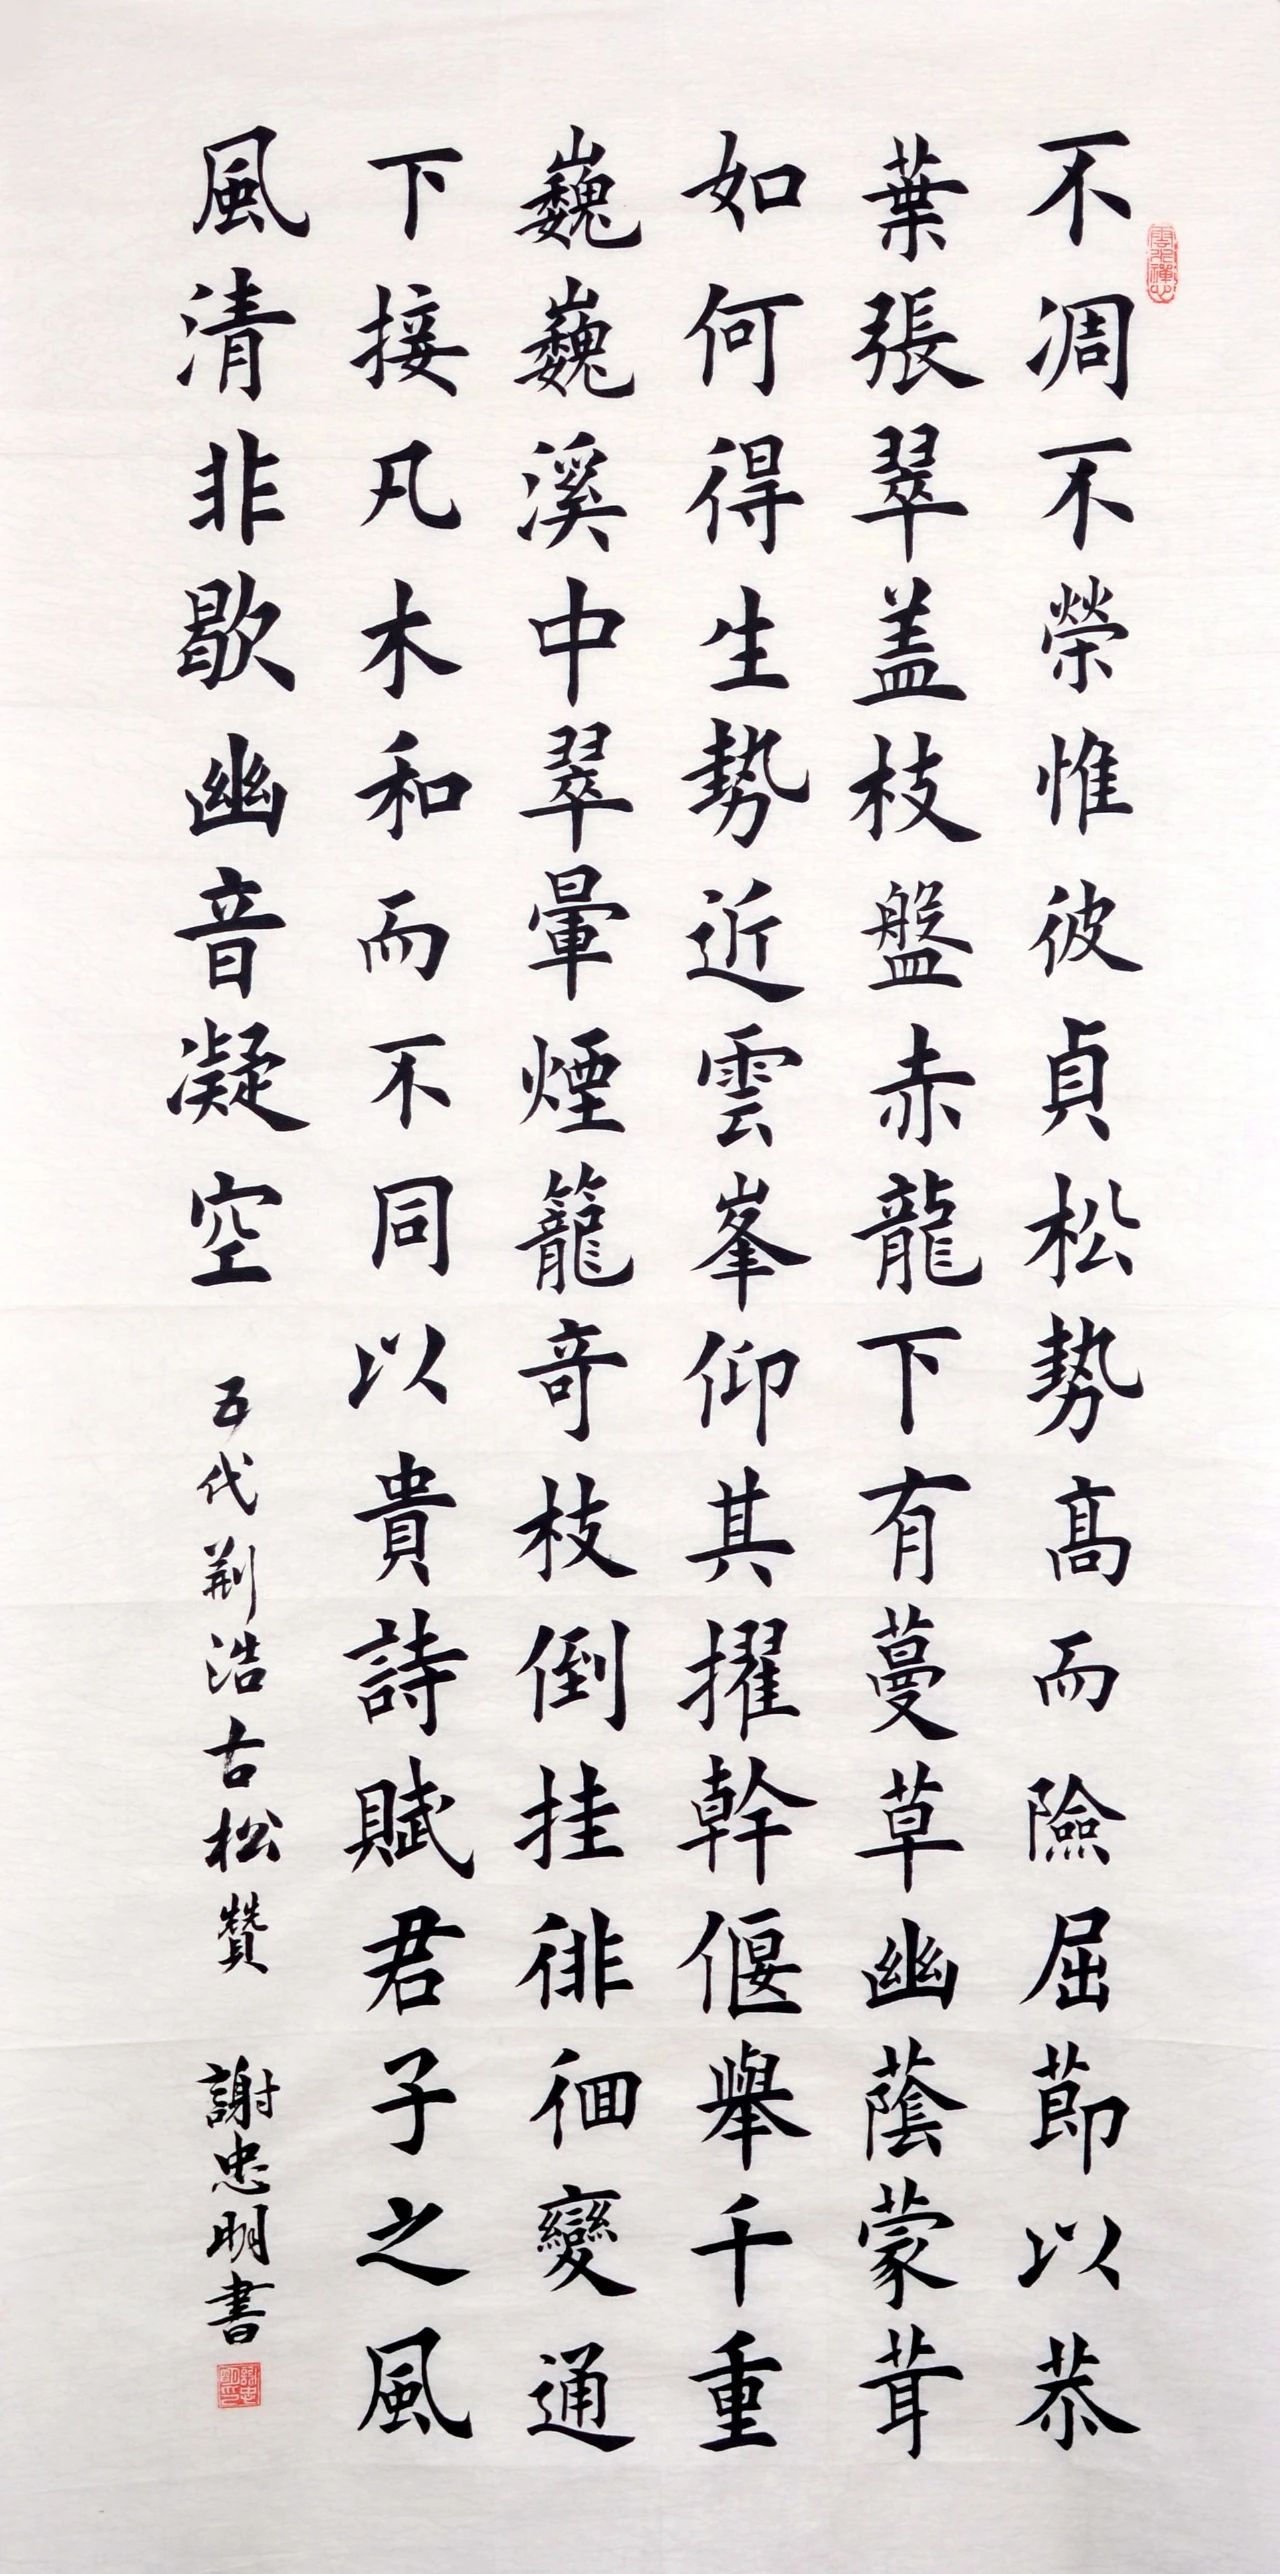 不凋不榮惟彼貞松勢髙而險屈莭以恭
葉張翠盖枝盤赤龍下有蔓草幽蔭蒙茸
如何得生勢近雲峯仰其擢幹偃舉千重
巍巍溪中翠暈煙籠奇枝倒挂徘徊變通
下接凡木和而不同以貴詩賦君子之風
風清非歇幽音凝空
五代荆浩古松贊
謝忠明書